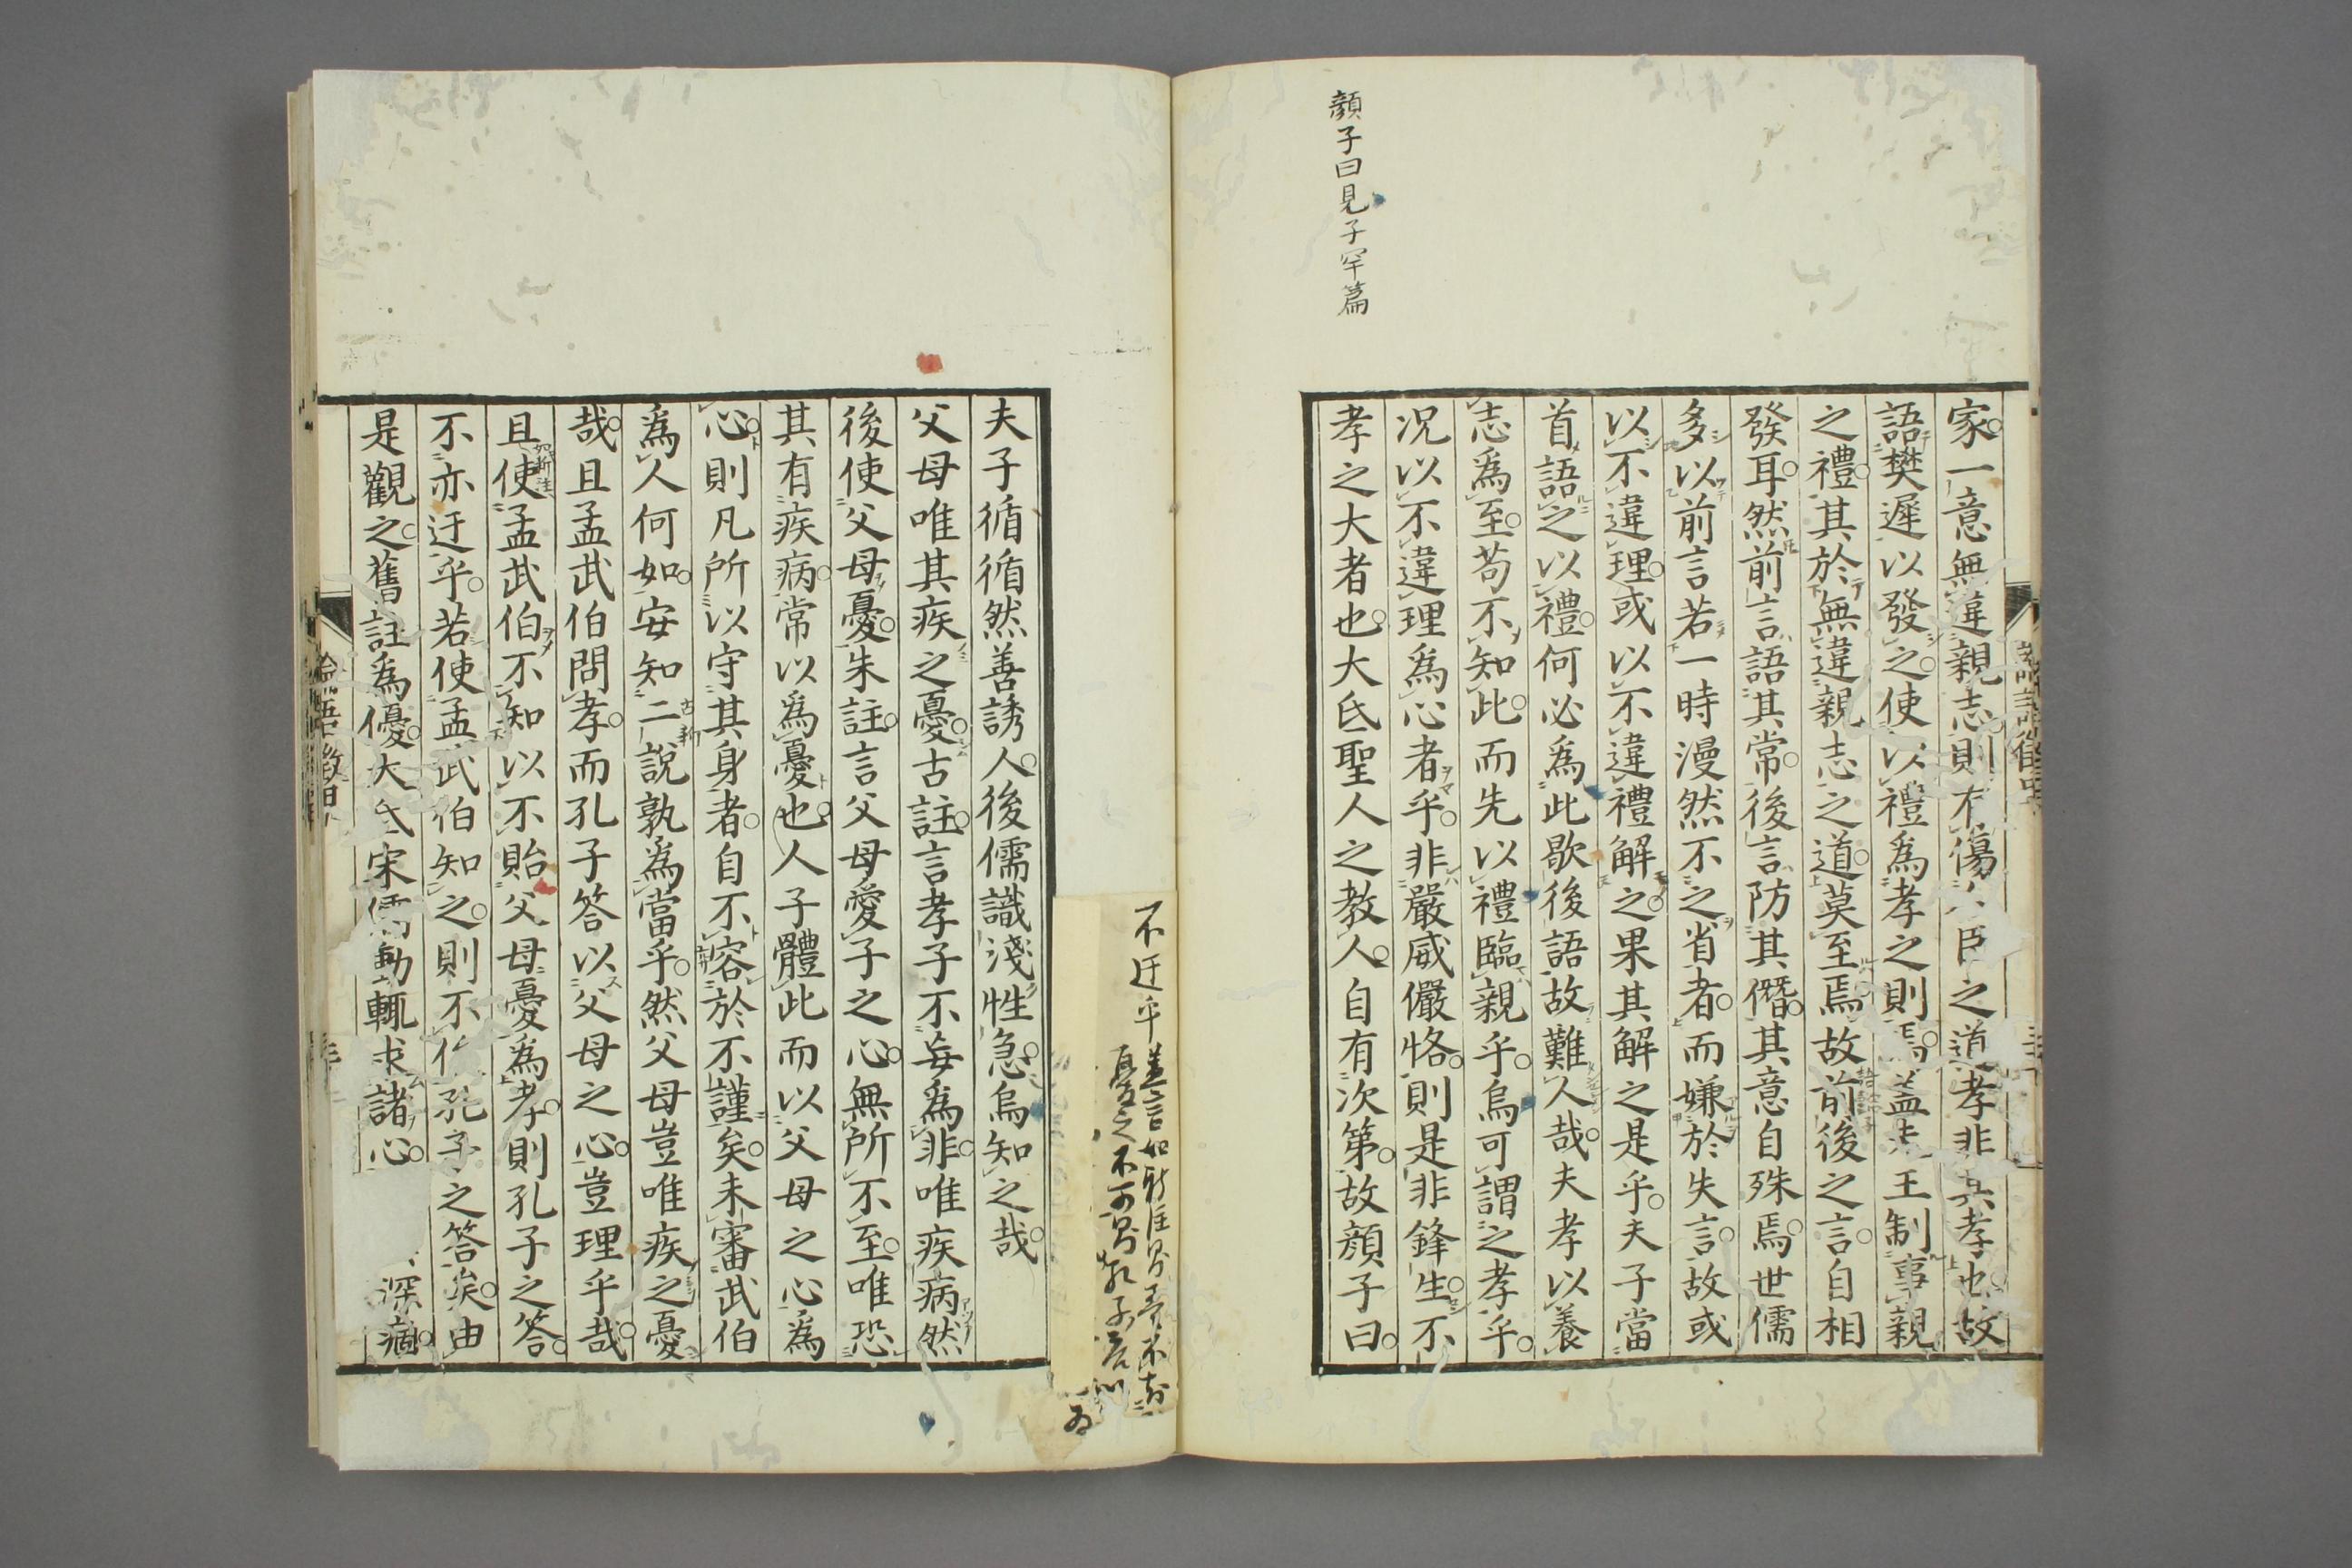 顏子曰見子罕篇
家一意無違親志則有傷人臣之道孝非其孝也故
語樊遲以發之使以禮爲孝之則焉蓋先王制事親
之禮其於無違親志之道莫至焉故前後之言自相
發耳然前言語其常後言防其僭其意自殊焉世儒
多以前言若一時漫然不之省者而嫌於失言故或
以不違理或以不違禮解之果其解之是乎夫子當
首語之以禮何必爲此歇後語故難人哉夫孝以養
志爲至苟不知此而先以禮臨親乎烏可謂之孝乎
况以不違理爲心者乎非嚴威儼恪則是非鋒生不
孝之大者也大氐聖人之教人自有次第故顔子曰
不迂乎
夫子循循然善誘人後儒識淺性急烏知之哉
父母唯其疾之憂古註言孝子不妄爲非唯疾病然
後使父母憂朱註言父母愛子之心無所不至唯恐
其有疾病常以爲憂也人子體此而以父母之心爲
心則凡所以守其身者自不容於不謹矣未審武伯
爲人何如安知二說孰爲當乎然父母豈唯疾之憂
哉且孟武伯問孝而孔子答以父母之心豈理乎哉
且使孟武伯不知以不貽父母憂爲孝則孔子之答
不亦迂乎若使孟武伯知之則不作孔子之答矣由
是觀之舊註爲優大氐宋儒動輒求諸心深痼